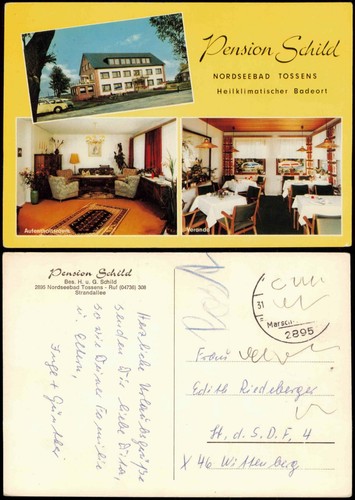 Pension Schild
NORDSEEBAD TOSSENS
Heilklimatischer Badeort
Aufenthaltsraum
Veranda
Pension Schild
Bes. H. u. G. Schild
2895 Nordseebad Tossens - Ruf (04736) 308
Strandallee
Herzliche Urlaubsgrüße
senden Dir, liebe Edita,
so wie Deiner Familie
u. Eltern,
Inge + Günther
31
2895
Frau
Edith Riedeberger
H.d.S.D.F. 4
X 46 Wittenberg